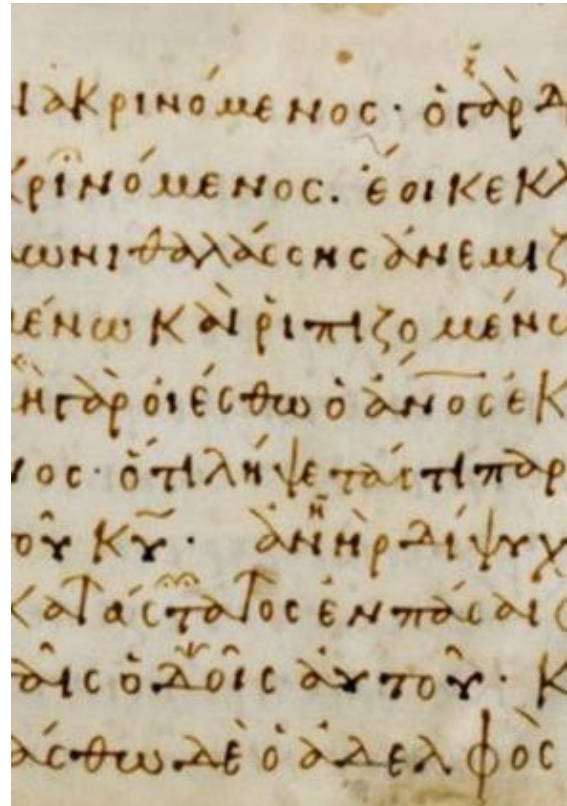 ιακρινόμενος· ὁ γὰρ δ
κρινόμενος. ἔοικε κλ
ωνι θαλάσσης ἀνεμιζ
μένω καὶ ῥιπιζομένω
μὴ γὰρ οἰέσθω ὁ ἄν̅ο̅ς ἐκ
νος· ὅτι λήψεταί τι παρ
τοῦ κ̅υ̅· ἀνὴρ δίψυχ
κατάστατος ἐν πάσαις
ταῖς ὁδοῖς αὐτοῦ· κ
άσθω δὲ ὁ ἀδελφὸς